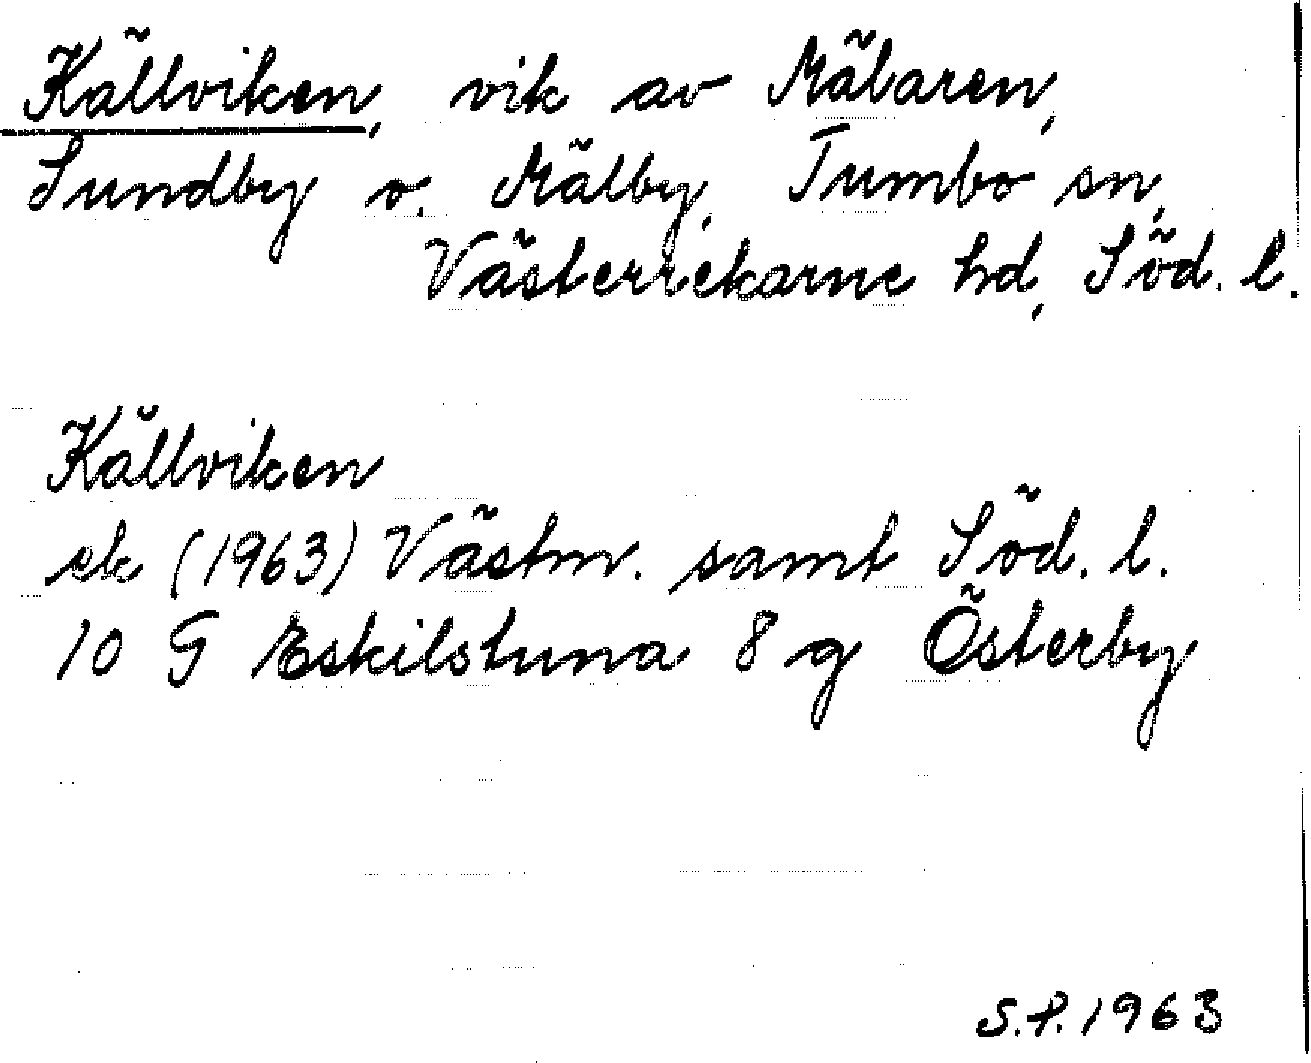 Källviken, vik av Mälaren,
Sundby o. Mälby, Tumbo sn,
Västerrekarne hd, Söd. l.
Källviken
ek (1963) Västm. samt Söd. l.
10 G Eskilstuna 8 g Österby
S.P. 1963